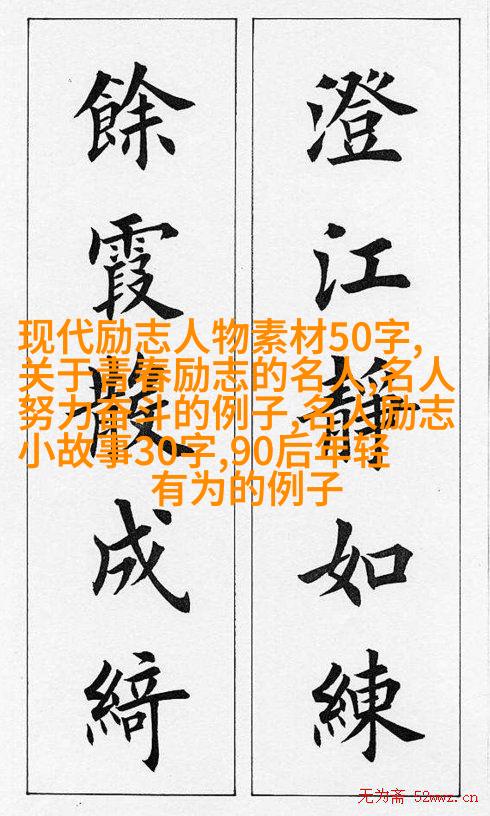 澄江靜如練
餘霞散成綺
现代励志人物素材50字,
关于青春励志的名人,名人
努力奋斗的例子,名人励志
小故事30字,90后年轻
有为的例子
无为斋 52wwz.cn